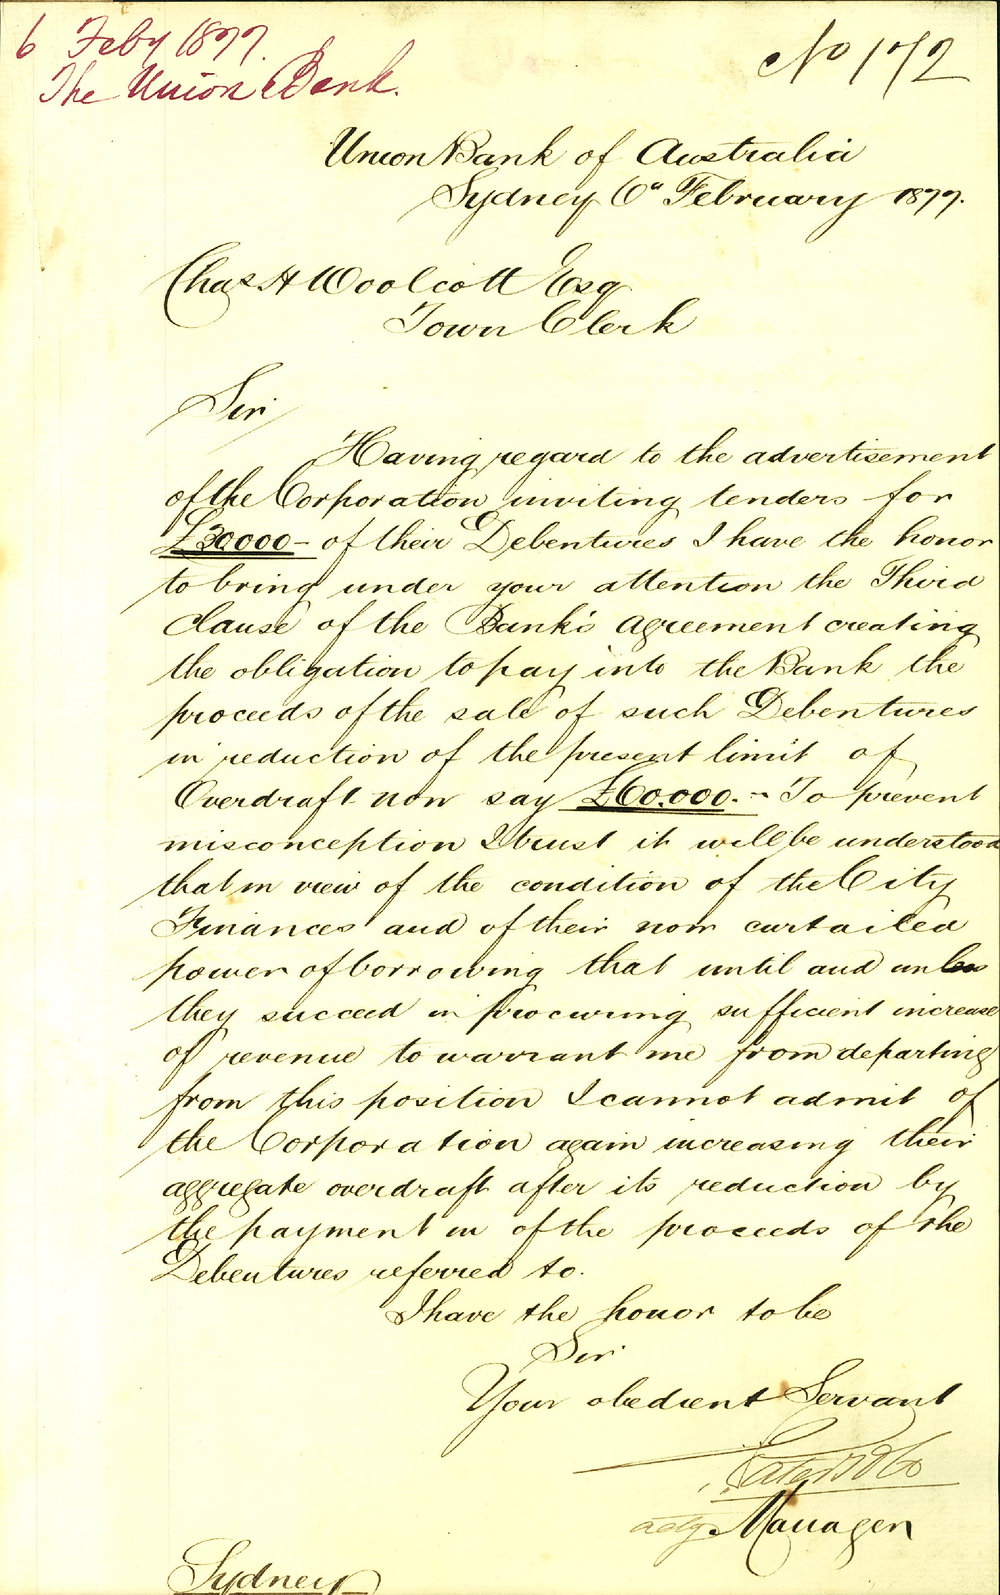 6 Feby 1877.
The Union Bank.
No 172
Union Bank of Australia
Sydney 6th February 1877.
Chas H Woolcott Esq
Town Clerk
Sir
Having regard to the advertisement
of the Corporation inviting tenders for
£30000- of their Debentures I have the honor
to bring under your attention the Third
Clause of the Bank's Agreement creating
the obligation to pay into the Bank the
proceeds of the sale of such Debentures
in reduction of the present limit of
Overdraft now say £60.000.- To prevent
misconception I trust it will be understood
that in view of the condition of the City
Finances and of their now curtailed
power of borrowing that until and unless
they succeed in procuring sufficient increase
of revenue to warrant me from departing
from this position I cannot admit of
the Corporation again increasing their
aggregate overdraft after its reduction by
the payment in of the proceeds of the
Debentures referred to.
I have the honor to be
Sir
Your obedient Servant
actg Manager
Sydney